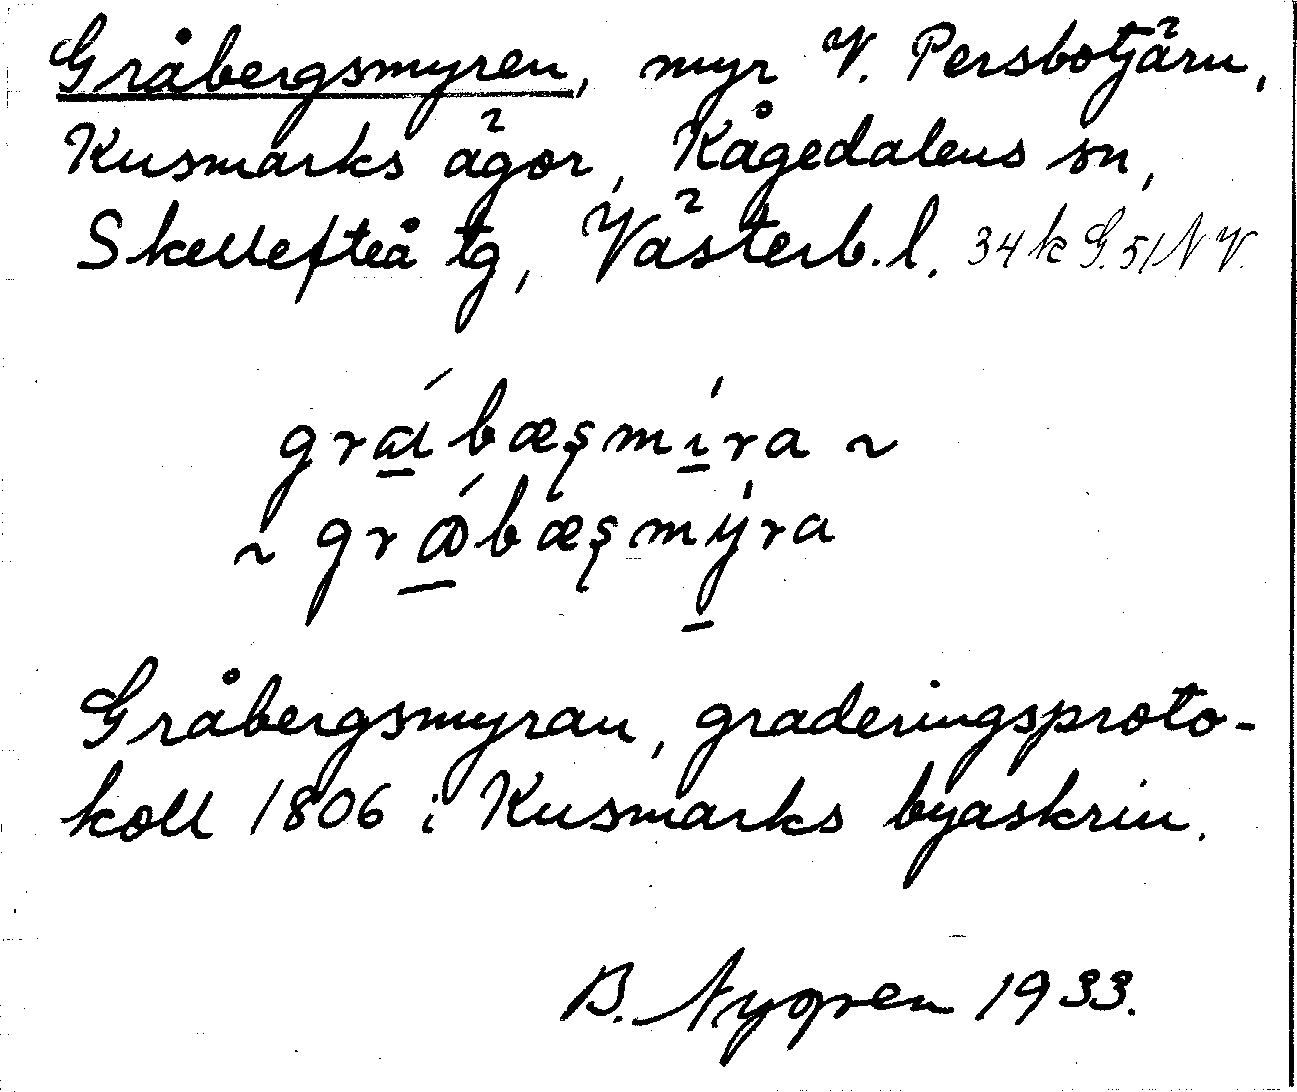 Gråbergsmyren, myr V. Persbotjärn,
Kusmarks ägor, Kågedalens sn,
Skellefteå tg, Västerb.l. 34 k G. 51 N V.
~
~
Gråbergsmyran, graderingsproto-
koll 1806 i Kusmarks byaskrin.
B. Nygren 1933.